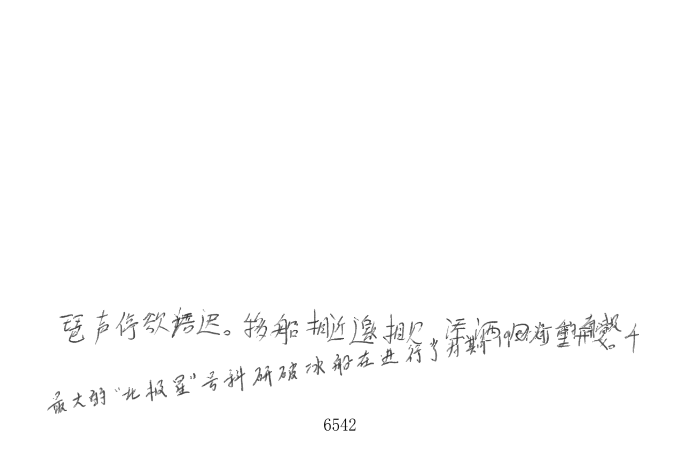 琶声停欲语迟。移船相近邀相见,添酒回灯重开宴。千
最大的“北极星”号科研破冰船在进行了为期
6542